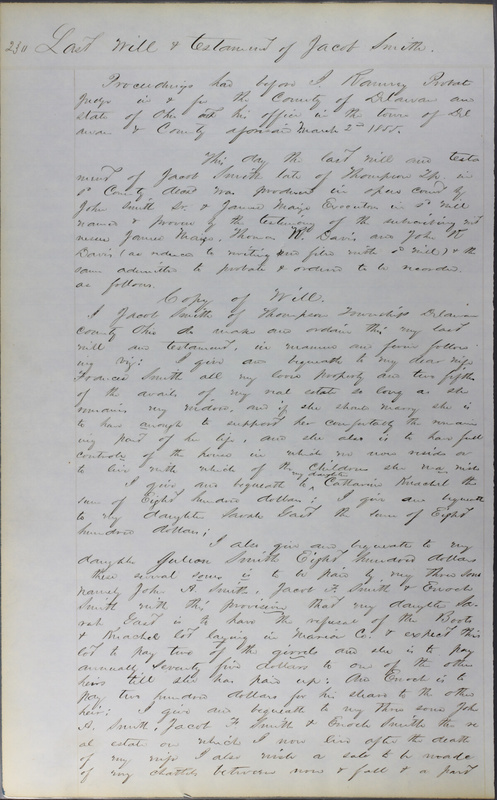 230 Last Will & testament of Jacob Smith.
Proceedings had before T. Romney Probate
Judge in & for the County of Delaware and
state of Ohio at his office in the town of Del
aware & County aforesaid March 2nd 1855.
This day the last will and testa
ment of Jacob Smith late of Thompson Tp. in
sd County decd was produced in open court by
John Smith Sr. & James Mayo Executors in sd will
named & proven by the testimony of the subscribing wit
nesses James Mayo, Thomas W. Davis and John R
Davis (as reduced to writing and filed with sd will) & the
same admitted to probate & ordered to be recorded
as follows.
Copy of Will.
I Jacob Smith of Thompson Township Delaware
County Ohio do make and ordain this my last
will and testament, in manner and form follow
ing viz: I give and bequeath to my dear wife
Frances Smith all my loose property and two fifths
of the avails of my real estate so long as she
remains my widow, and if she should marry she is
to have enough to support her comfortably the remain
ing part of her life, and she also is to have full
control of the house in which we now reside or
to live with which of the children she may wish
I give and bequeath to my daughter Catharine Krachel the
sum of Eight hundred dollars; I give and bequeath
to my daughter Sarah Gast the sum of Eight
hundred dollars;
I also give and bequeath to my
daughter Julian Smith Eight hundred dollars
these several sums is to be paid by my three sons
namely John A. Smith, Jacob F. Smith & Enoch
Smith with this provision that my daughter Sa-
rah Gast is to have the refusal of the Boots
& Krachel lot laying in Marion Co. & expect this
lot to pay two of the girls and she is to pay
annually seventy five dollars to one of the other
heirs till she has paid up: And Enoch is to
pay two hundred dollars for his share to the other
heirs; I give and bequeath to my three sons John
A. Smith, Jacob F. Smith & Enoch Smith the re
al estate on which I now live after the death
of my wife I also wish a sale to be made
of my chattels between now & fall & a part